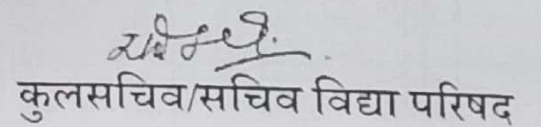 कुलसचिव/सचिव विद्या परिषद